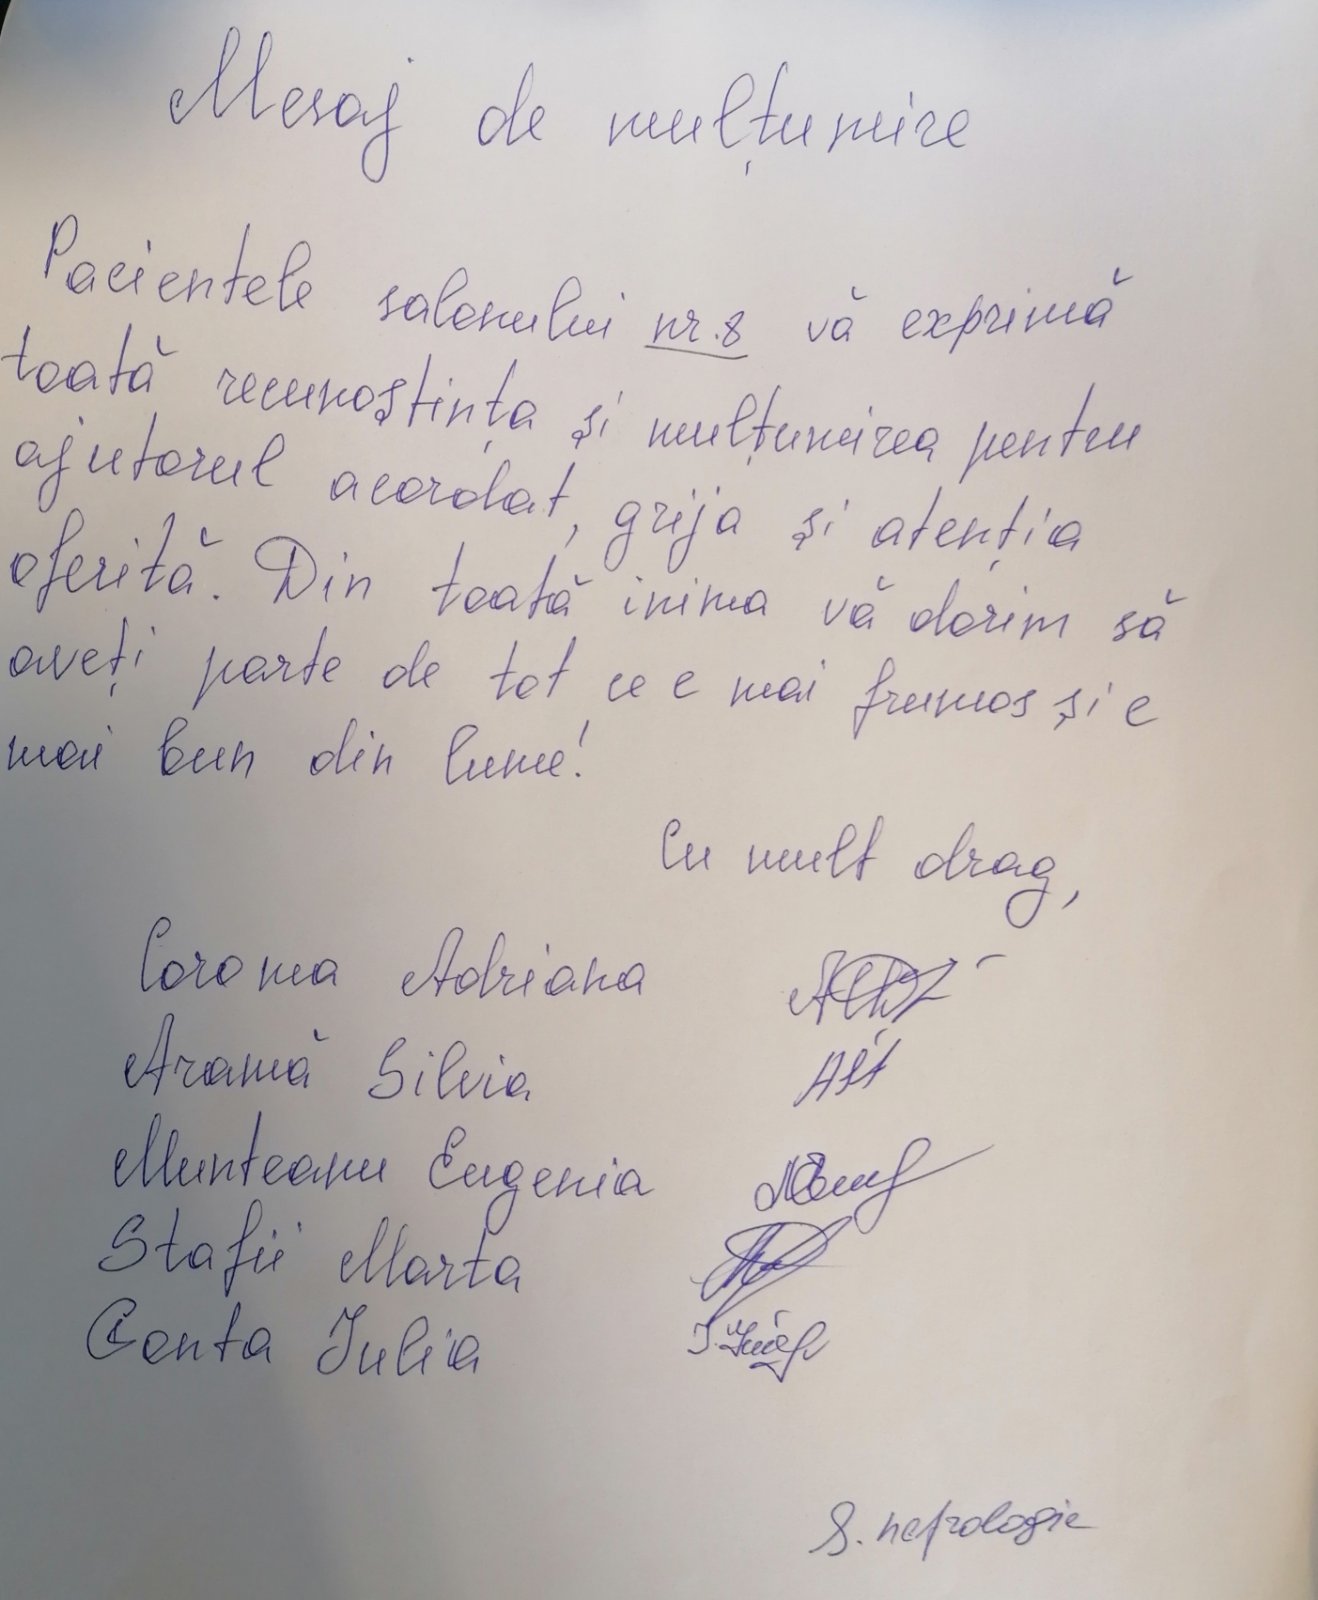 Mesaj de mulțumire
Pacientele salonului nr. 8 vă exprimă
toată recunoștința și mulțumirea pentru
ajutorul acordat, grija și atenția
oferită. Din toată inima vă dorim să
aveți parte de tot ce e mai frumos și e
mai bun din lume!
Cu mult drag,
Coroma Adriana
Aramă Silvia
Munteanu Eugenia
Stafii Marta
Conta Iulia
S. nefrologie